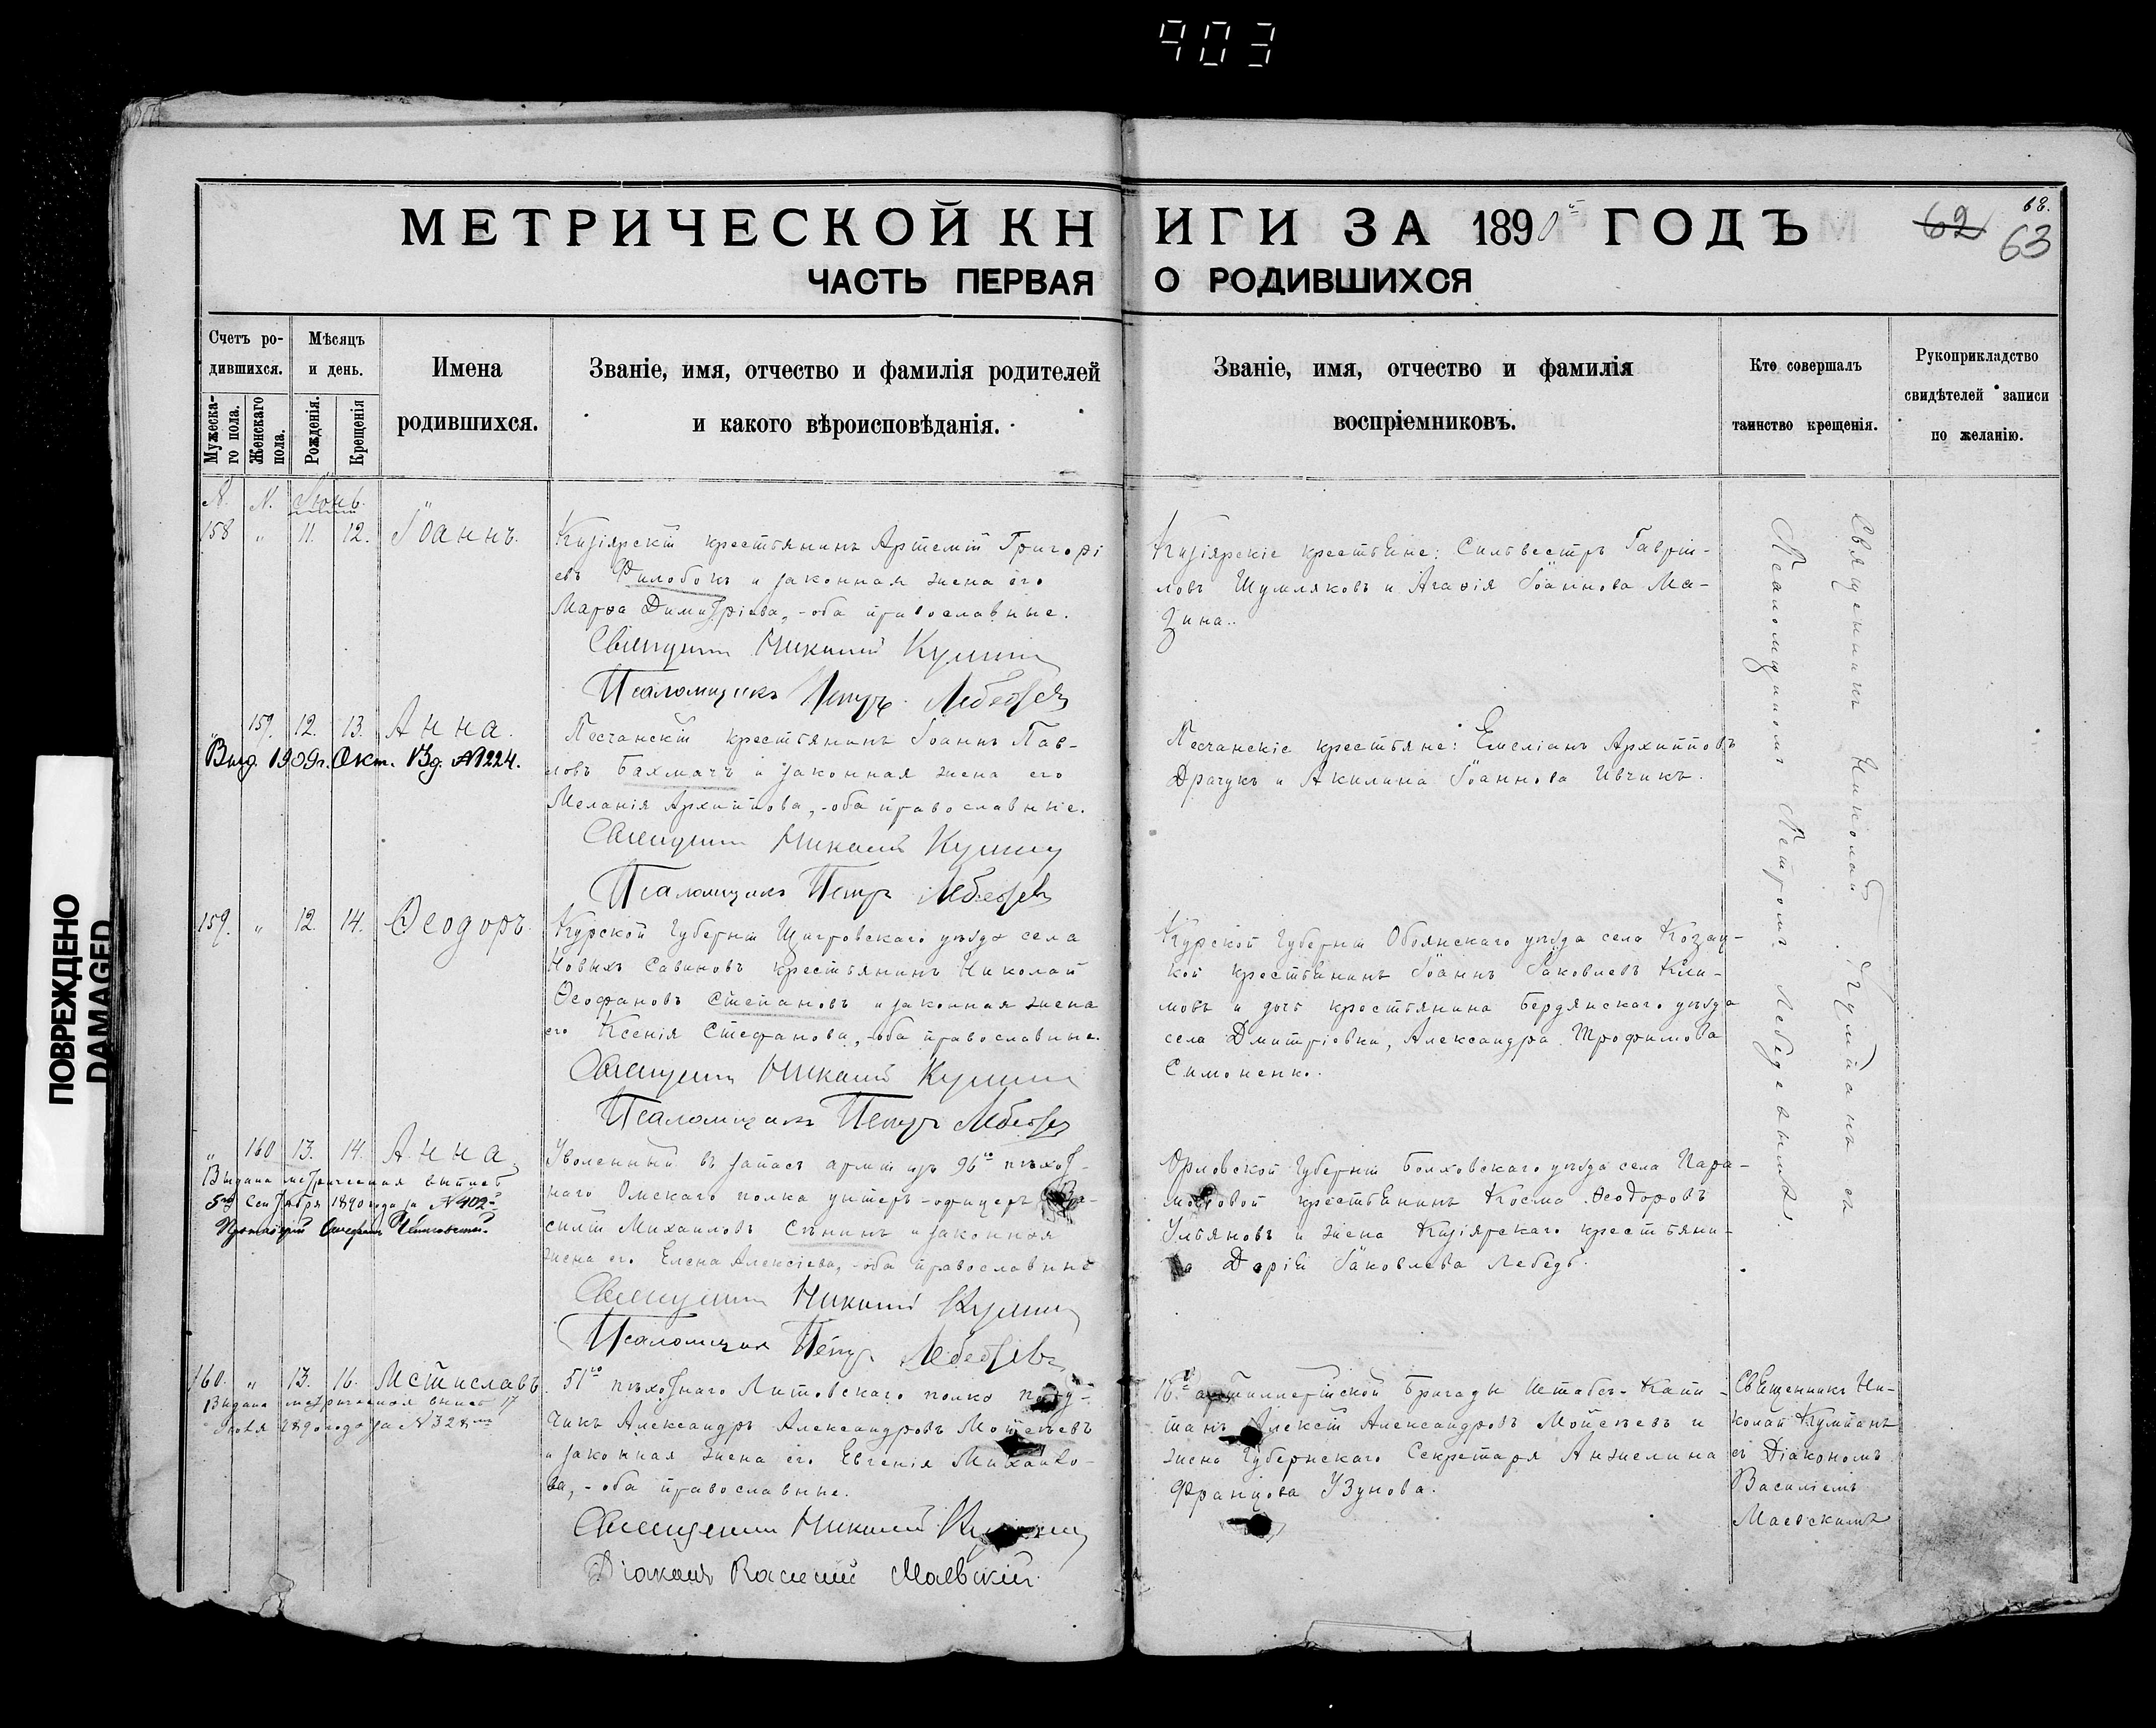 903
МЕТРИЧЕСКОЙ КНИГИ ЗА 1890й ГОДЪ
62 68.
63
ЧАСТЬ ПЕРВАЯ О РОДИВШИХСЯ
Счетъ ро-
дившихся.
Мужеска-
го пола.
Женскаго
пола.
Мѣсяцъ
и день.
Рожденія.
Крещенія
Имена
родившихся.
Званіе, имя, отчество и фамилія родителей
и какого вѣроисповѣданія.
Званіе, имя, отчество и фамилія
воспріемниковъ.
Кто совершалъ
таинство крещенія.
Рукоприкладство
свидѣтелей записи
по желанію.
N. N. Іюнь.
158 " 11. 12. Іоаннъ.
Кизіярскій крестьянинъ Артемій Григорі
евъ Филобокъ и законная жена его
Марѳа Димитріева, - оба православные.
Священникъ Николай Кулманъ
Псаломщикъ Петръ Лебедевъ
Кизіярскіе крестьяне: Сильвестръ Гаврі-
ловъ Шумляковъ и Агаѳія Іоаннова Ма-
зина..
" 159. 12. 13. Анна.
Выд. 1909 г. Окт. 13 д. № 1224.
Песчанскій крестьянинъ Іоаннъ Пав-
ловъ Бахмачъ и законная жена его
Меланія Архиппова, - оба православные.
Священникъ Николай Кулманъ
Псаломщикъ Петръ Лебедевъ
Песчанскіе крестьяне: Емеліанъ Архипповъ
Драчукъ и Акилина Іоаннова Ивчикъ.
159. " 12. 14. Ѳеодоръ.
Курской Губерніи Щигровскаго уѣзда села
Новыхъ Савиновъ крестьянинъ Николай
Ѳеофановъ Степановъ и законная жена
его Ксенія Стефанова, - оба православные.
Священникъ Николай Кулманъ
Псаломщикъ Петръ Лебедевъ
Курской Губерніи Обоянскаго уѣзда села Козац-
кой крестьянинъ Іоаннъ Іаковлевъ Кли-
мовъ и дочь крестьянина Бердянскаго уѣзда
села Дмитріевки, Александра Трофимова
Симоненко.
" 160 13. 14. Анна,
Выдана метрическая выпись
5го Сентября 1890 года за № 402й
Уволенный въ запасъ арміи изъ 96го пѣхот-
наго Омскаго полка унтеръ-офицеръ Ва-
силій Михаиловъ Сѣнинъ и законная
жена его Елена Алексіева, - оба православные
Священникъ Николай Кулманъ
Псаломщикъ Петръ Лебедевъ
Орловской Губерніи Болховскаго уѣзда села Пара-
моновой крестьянинъ Косма Ѳеодоровъ
Ульяновъ и жена Кизіярскаго крестьяни-
на Дарія Іаковлева Лебедь.
Священникъ Николай Кулманъ съ
Псаломщикомъ Петромъ Лебедевымъ.
160. " 13. 16. Мстиславъ.
Выдана метрическая выпись 17
Іюля 1890 года за № 328
51го пѣхотнаго Литовскаго полка пору-
чикъ Александръ Александровъ Мойсеевъ
и законная жена его Евгенія Михаило-
ва, - оба православные.
Священникъ Николай Кулманъ
Діаконъ Василій Маевскій
артиллерійской Бригады Штабсъ-Капи-
танъ Алексій Александровъ Мойсеевъ и
жена Губернскаго Секретаря Анжелина
Францова Узунова.
Священникъ Ни-
колай Кулманъ
съ Діакономъ
Василіемъ
Маевскимъ
ПОВРЕЖДЕНО
DAMAGED